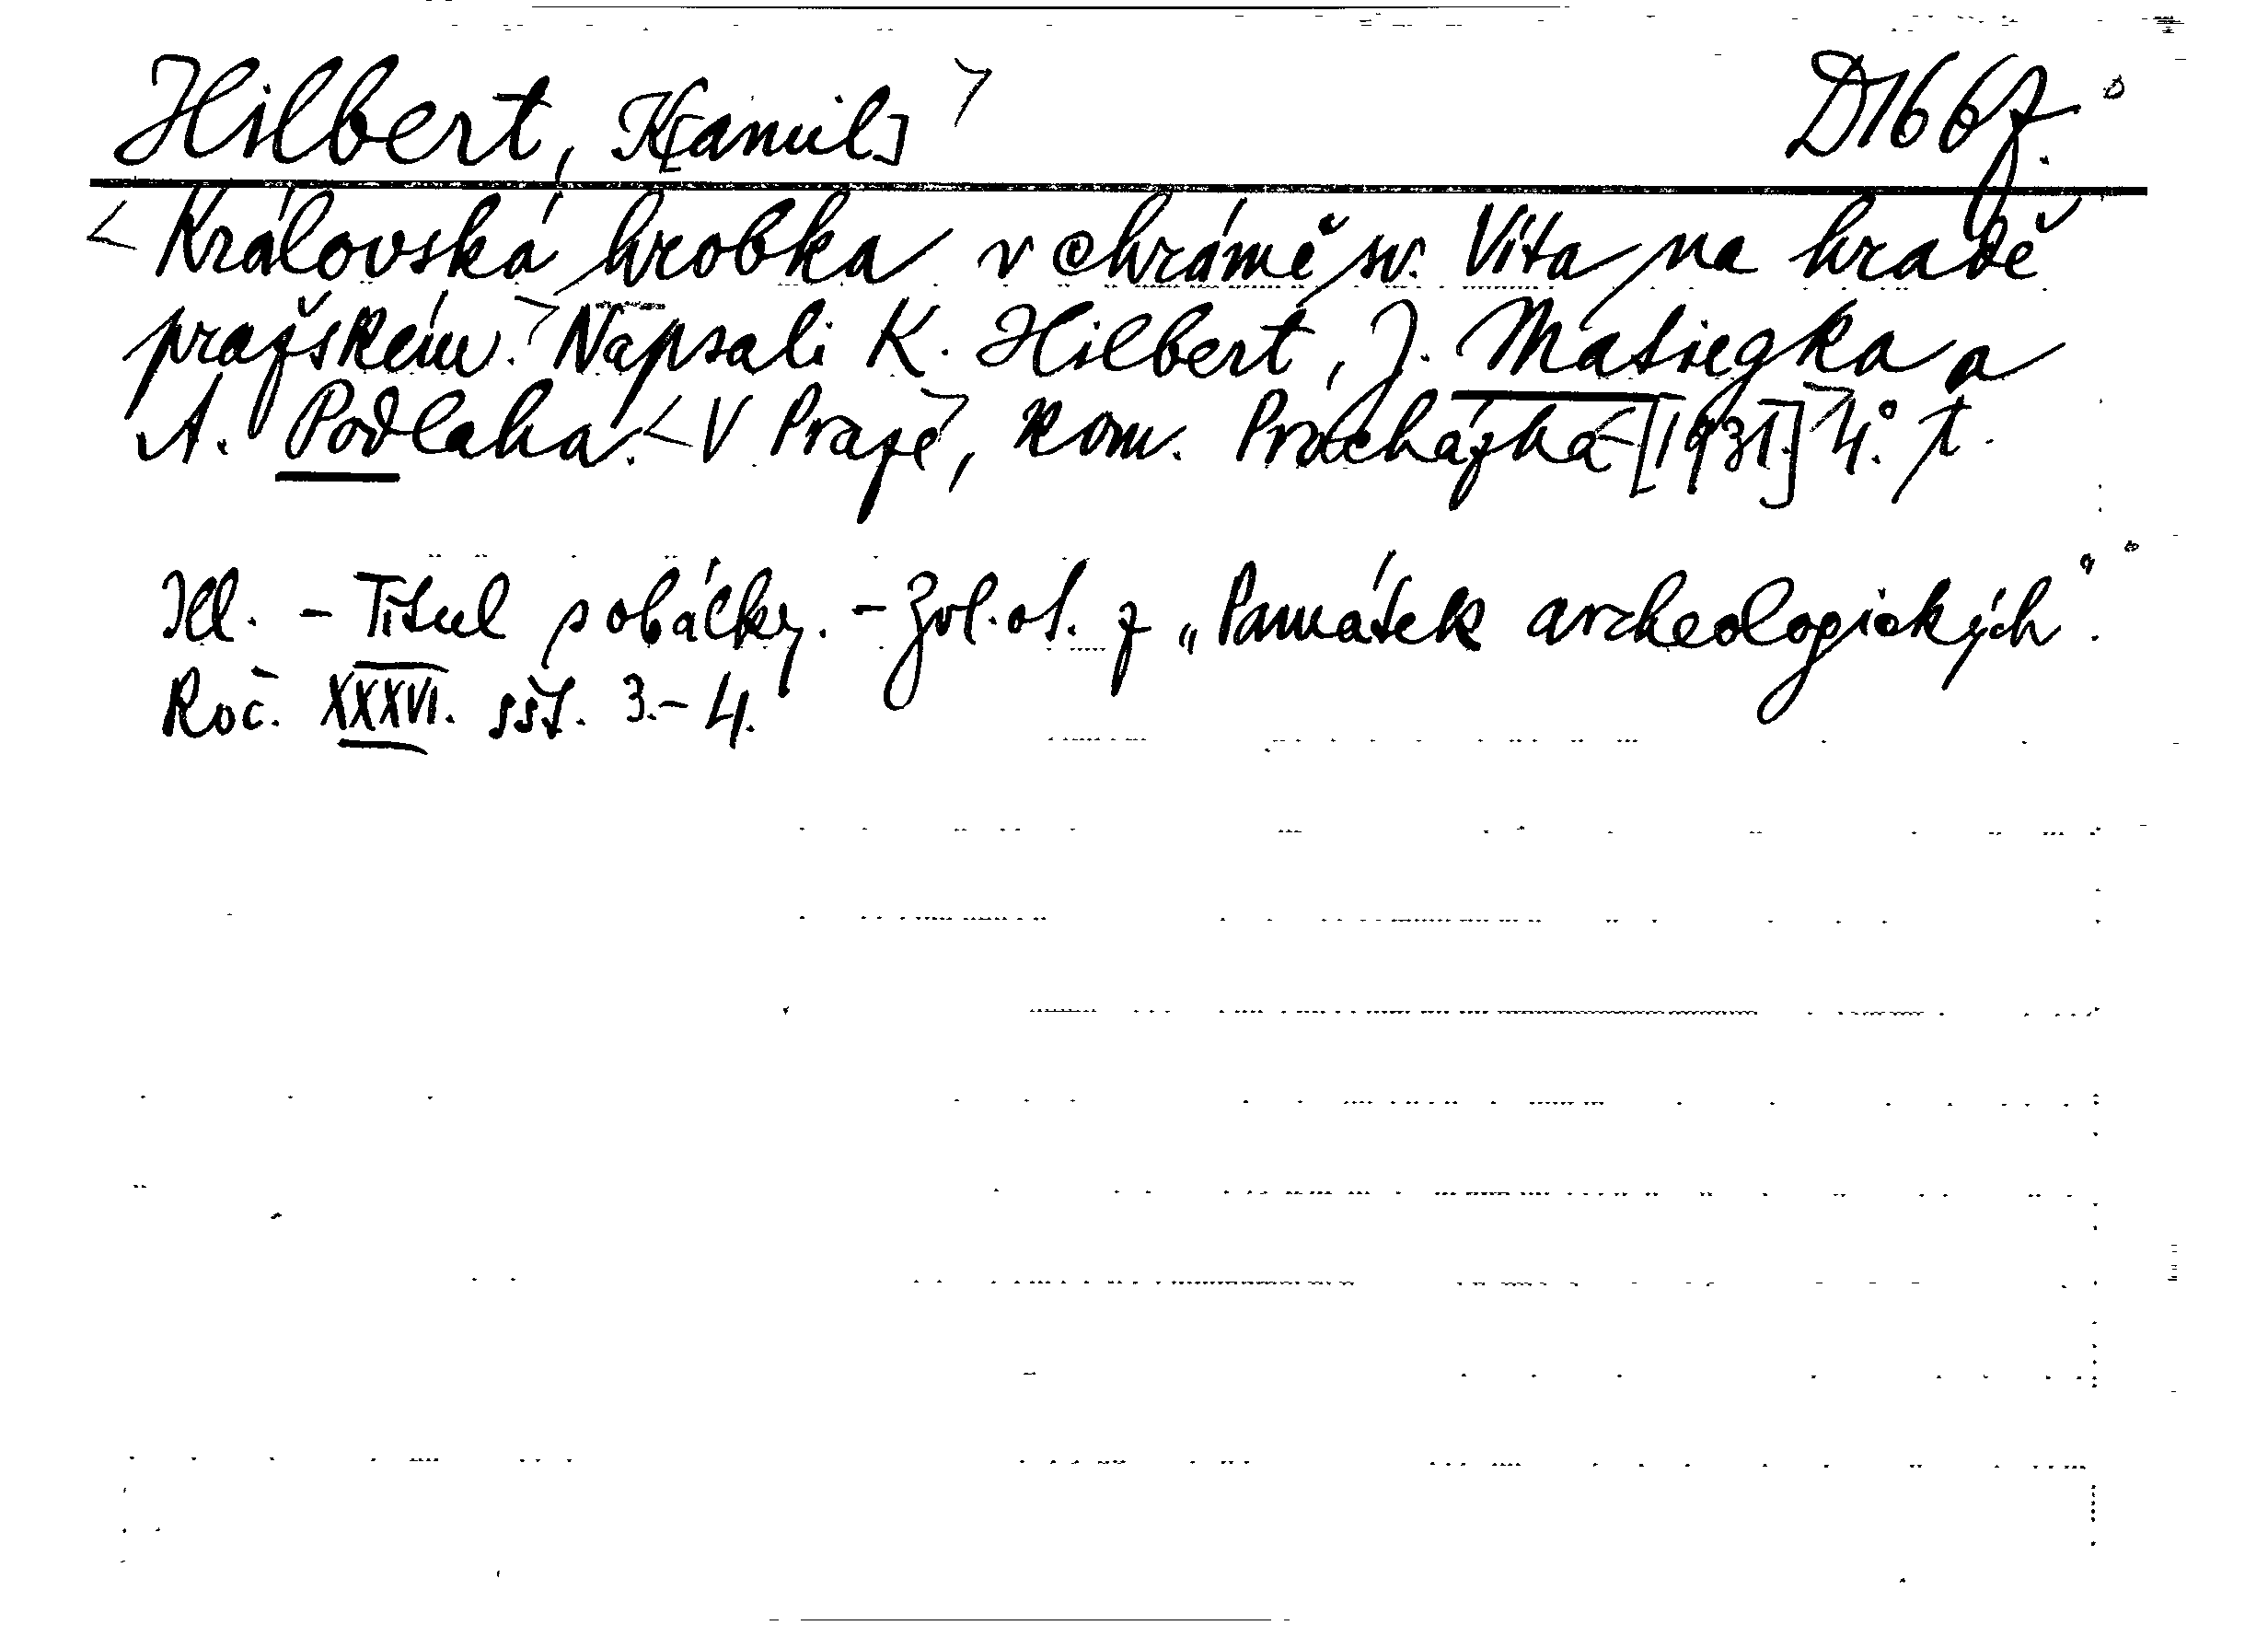 Hilbert, K[amil]> D1667.
<Královská hrobka v chrámě sv. Víta na hradě
pražském.> Napsali K. Hilbert, J. Matiegka a
A. Podlaha. <V Praze>, kom. Procházka <[1931.]> 4.° 1.
Ill. – Titul s obálky. – Zvl. ot. z „Památek archeologických".
Roč. XXXVI. sš1. 3.–4.